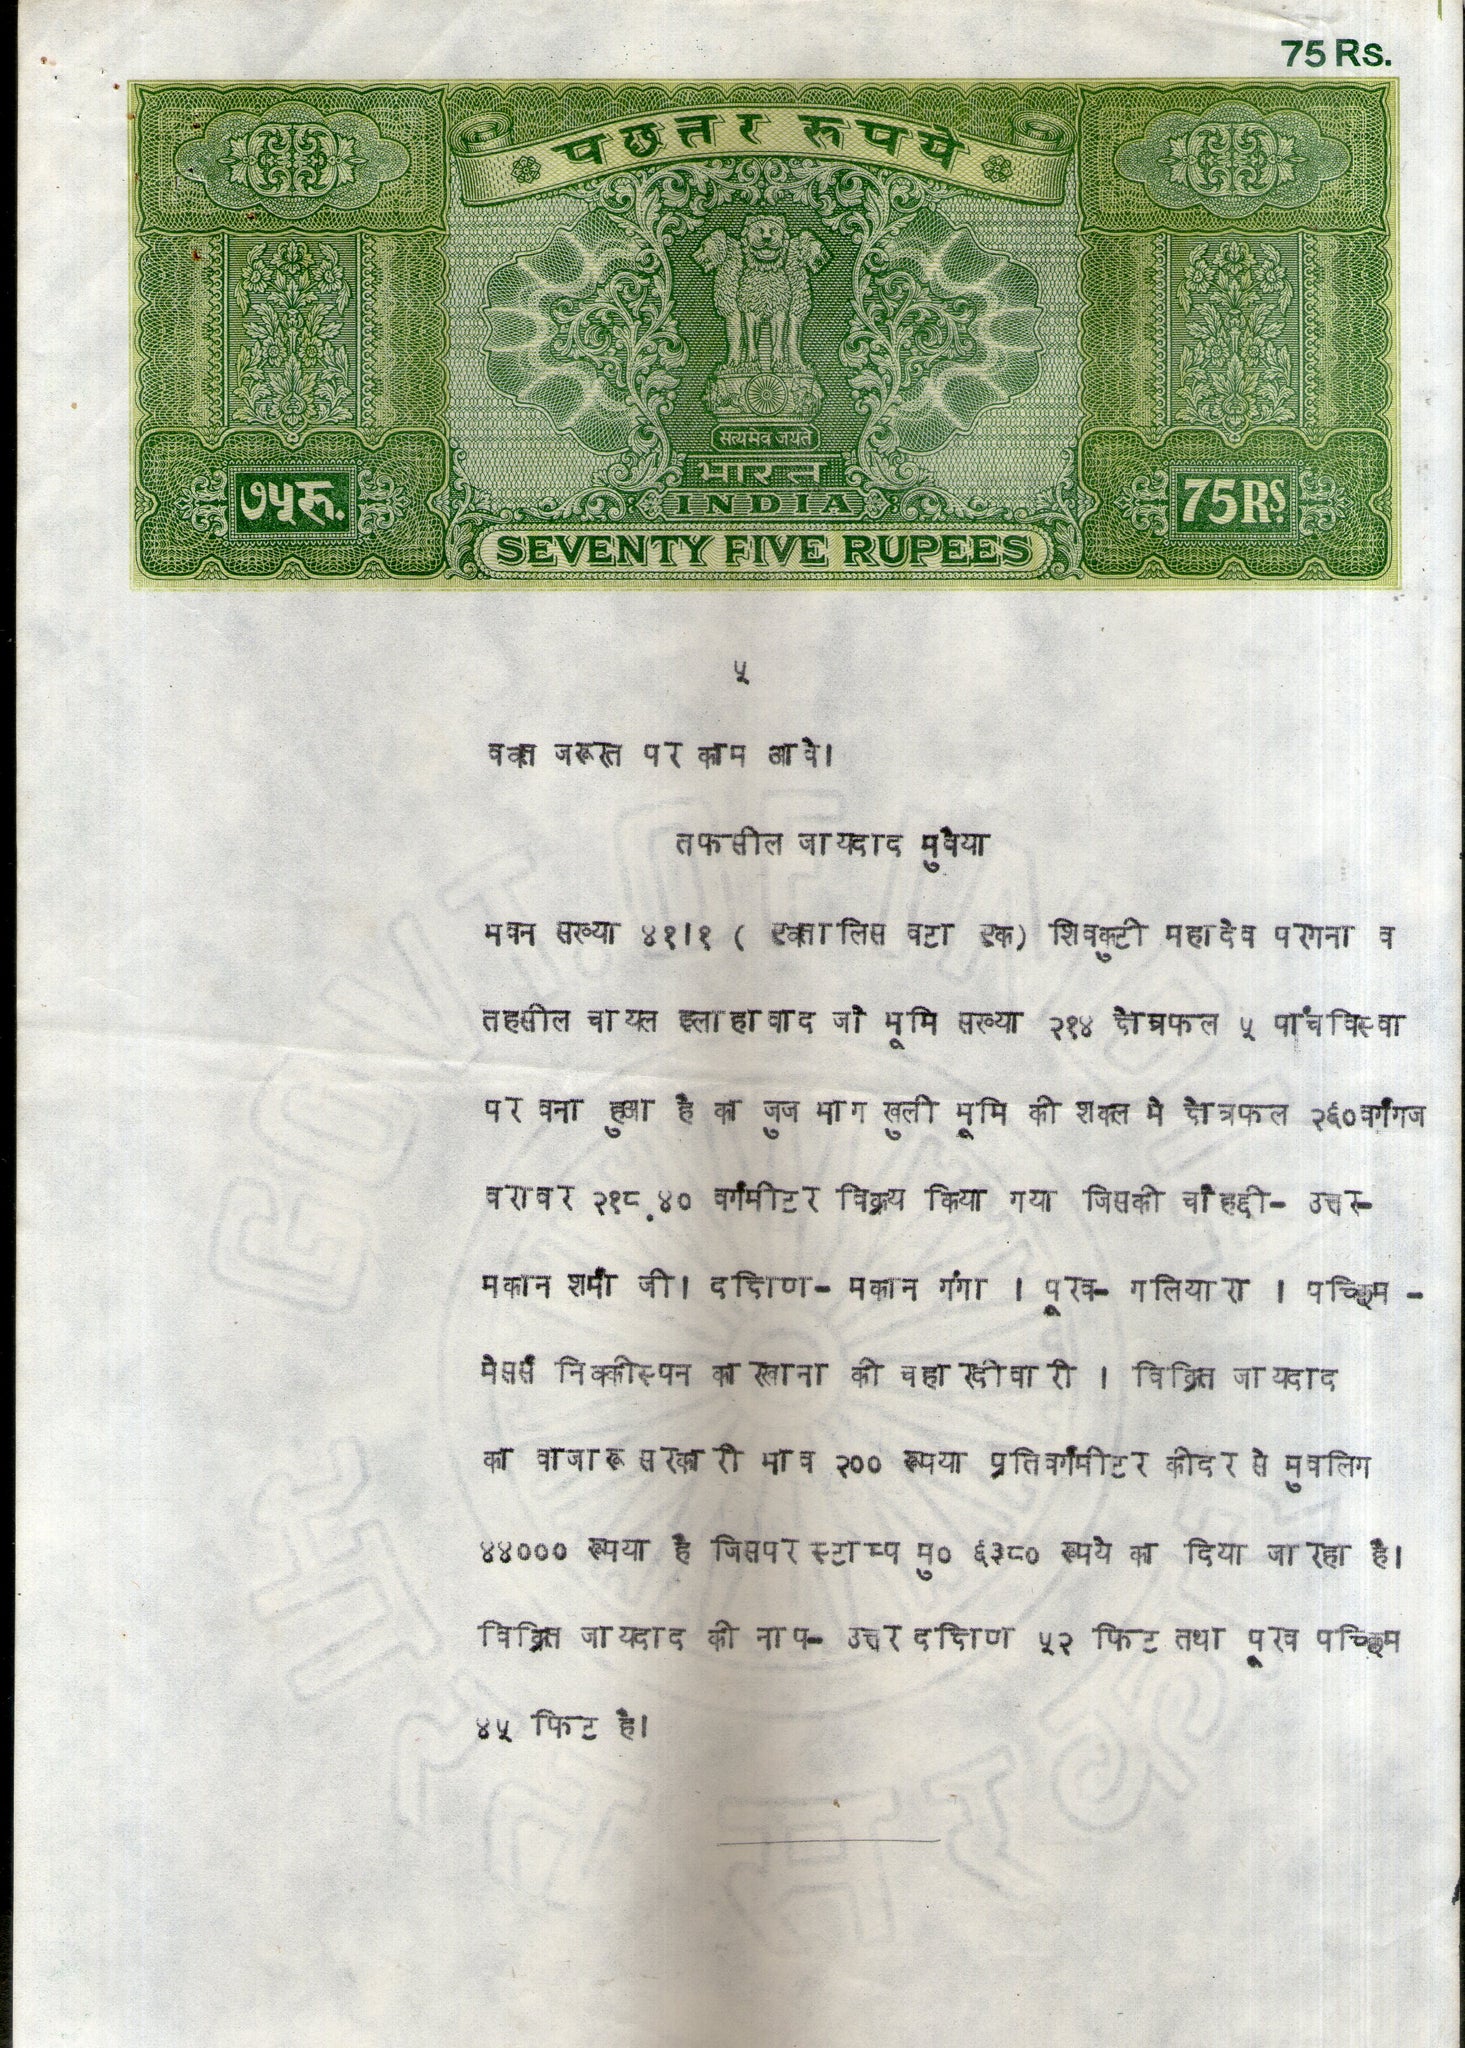 75 Rs.
पछत्तर रुपये
सत्यमेव जयते
भारत
INDIA
७५रु.
75Rs.
SEVENTY FIVE RUPEES
५
वक्त जरूरत पर काम आवे।
तफसील जायदाद मुवैया
भवन संख्या ४१।१ ( एकतालिस वटा एक) शिवकुटी महादेव परगना व
तहसील चायल इलाहावाद जो भूमि संख्या २१४ क्षेत्रफल ५ पांचविस्वा
पर वना हुआ है का जुज भाग खुली भूमि की शक्ल मे क्षेत्रफल २६०वर्गगज
वरावर २१८.४० वर्गमीटर विक्रय किया गया जिसकी चौहद्दी- उत्तर-
मकान शर्मा जी। दक्षिण- मकान गंगा । पूरव- गलियारा । पच्छिम -
मेसर्स निक्कीस्पन कारखाना की चहारदीवारी । विक्रित जायदाद
का वाजारू सरकारी भाव २०० रूपया प्रतिवर्गमीटर कीदर से मुवलिग
४४००० रूपया है जिसपर स्टाम्प मु० ६३८० रूपये का दिया जा रहा है।
विक्रित जायदाद की नाप- उत्तर दक्षिण ५२ फिट तथा पूरव पच्छिम
४५ फिट है।